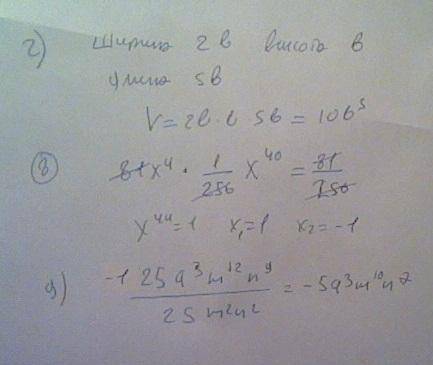 2) Ширина 2в высота в
длина 5в
V = 2в · в 5в = 10в³
⑧ 81x⁴ · 1/256 x⁴⁰ = 81/256
x⁴⁴ = 1 x₁ = 1 x₂ = -1
9) -125a³m¹²n⁹ / 25m²n² = -5a³m¹⁰n⁷